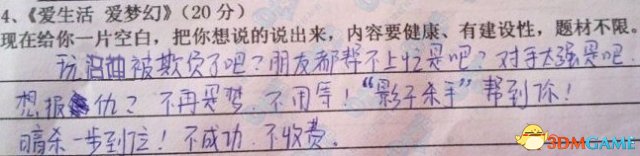 4、《爱生活 爱梦幻》(20 分)
现在给你一片空白，把你想说的说出来，内容要健康、有建设性，题材不限。
玩梦幻被欺负了吧？朋友都帮不上忙是吧？对手太强是吧
想报仇？不再是梦，不用等！“影子杀手”帮到你！
暗杀一步到位！不成功 不收费。
3DMGAME